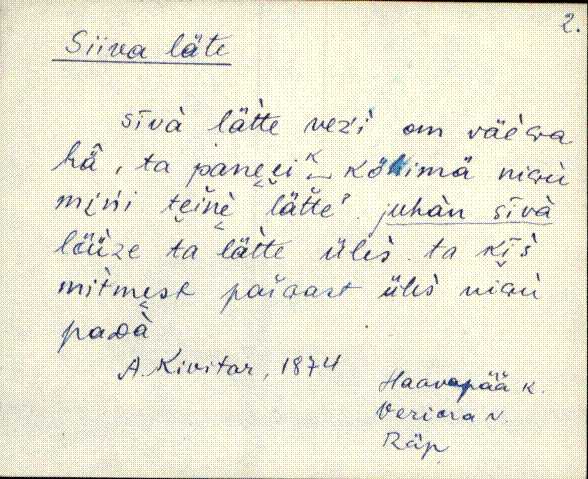 2.
Siiva läte
sīvà lätte vezi om väėga
hâ, ta pane̮ i köhimä niɢu
mi̮ni te̮i̮ne̮ lätte. juhàn sīvà
löüze ta lätte ülès. ta ki̮i̮s
mitme̮st päivast ülès niɢu
padà
A. Kivitar, 1874
Haavapää k.
Veriora v.
Räp.